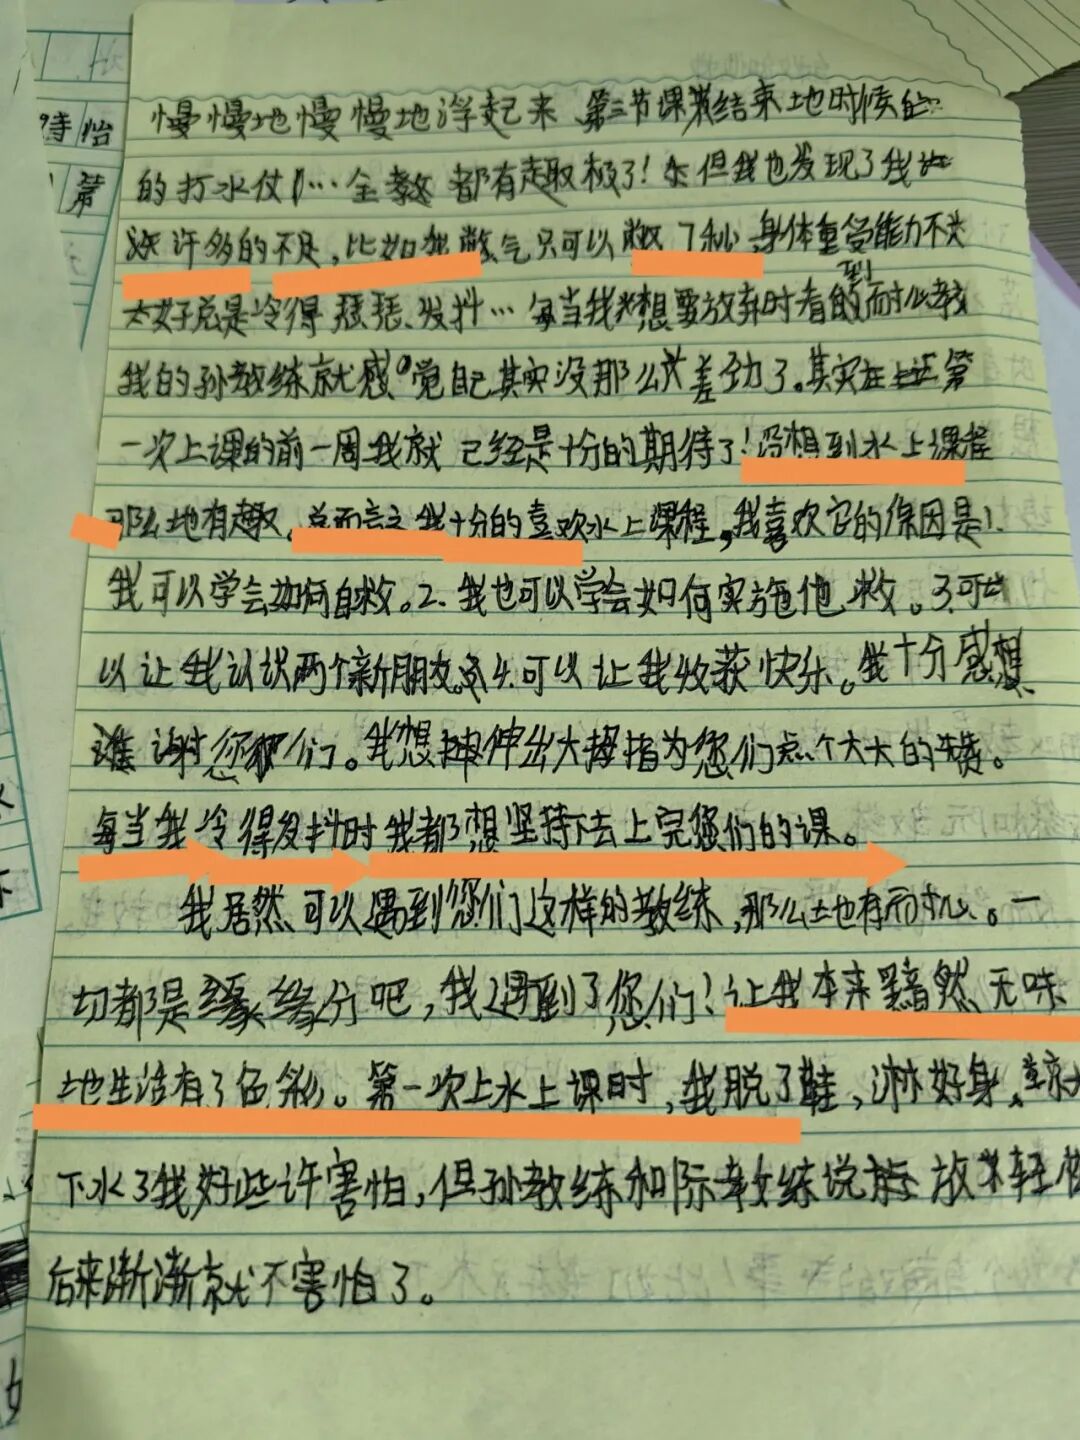 慢慢地慢慢地浮起来 第三节课结束地时候
的打水仗!…全教都有趣极了!但我也发现了我
许多的不足,比如我憋气只可以憋7秒、身体重受能力不
太好总是冷得瑟瑟发抖…每当我想要放弃时看到的耐心教
我的孙教练就感觉自己其实没那么差劲了。其实在上第
一次上课的前一周我就已经是十分的期待了!没想到水上课程
那么地有趣,总而言之我十分的喜欢水上课程,我喜欢它的原因是1.
我可以学会如何自救。2.我也可以学会如何实施他救。3.可
以让我认识两个新朋友。4.可以让我收获快乐。我十分感想
谢您们。我想伸出大拇指为您们点个大大的赞。
每当我冷得发抖时我都想坚持下去上完您们的课。
我居然可以遇到您们这样的教练,那么地有耐心。一
切都是缘分吧,我遇到了您们!让我本来黯然无味
地生活有了色彩。第一次上水上课时,我脱了鞋,淋好身、
下水了我好些许害怕,但孙教练和陈教练说放轻
后来渐渐就不害怕了。
诗怡
第